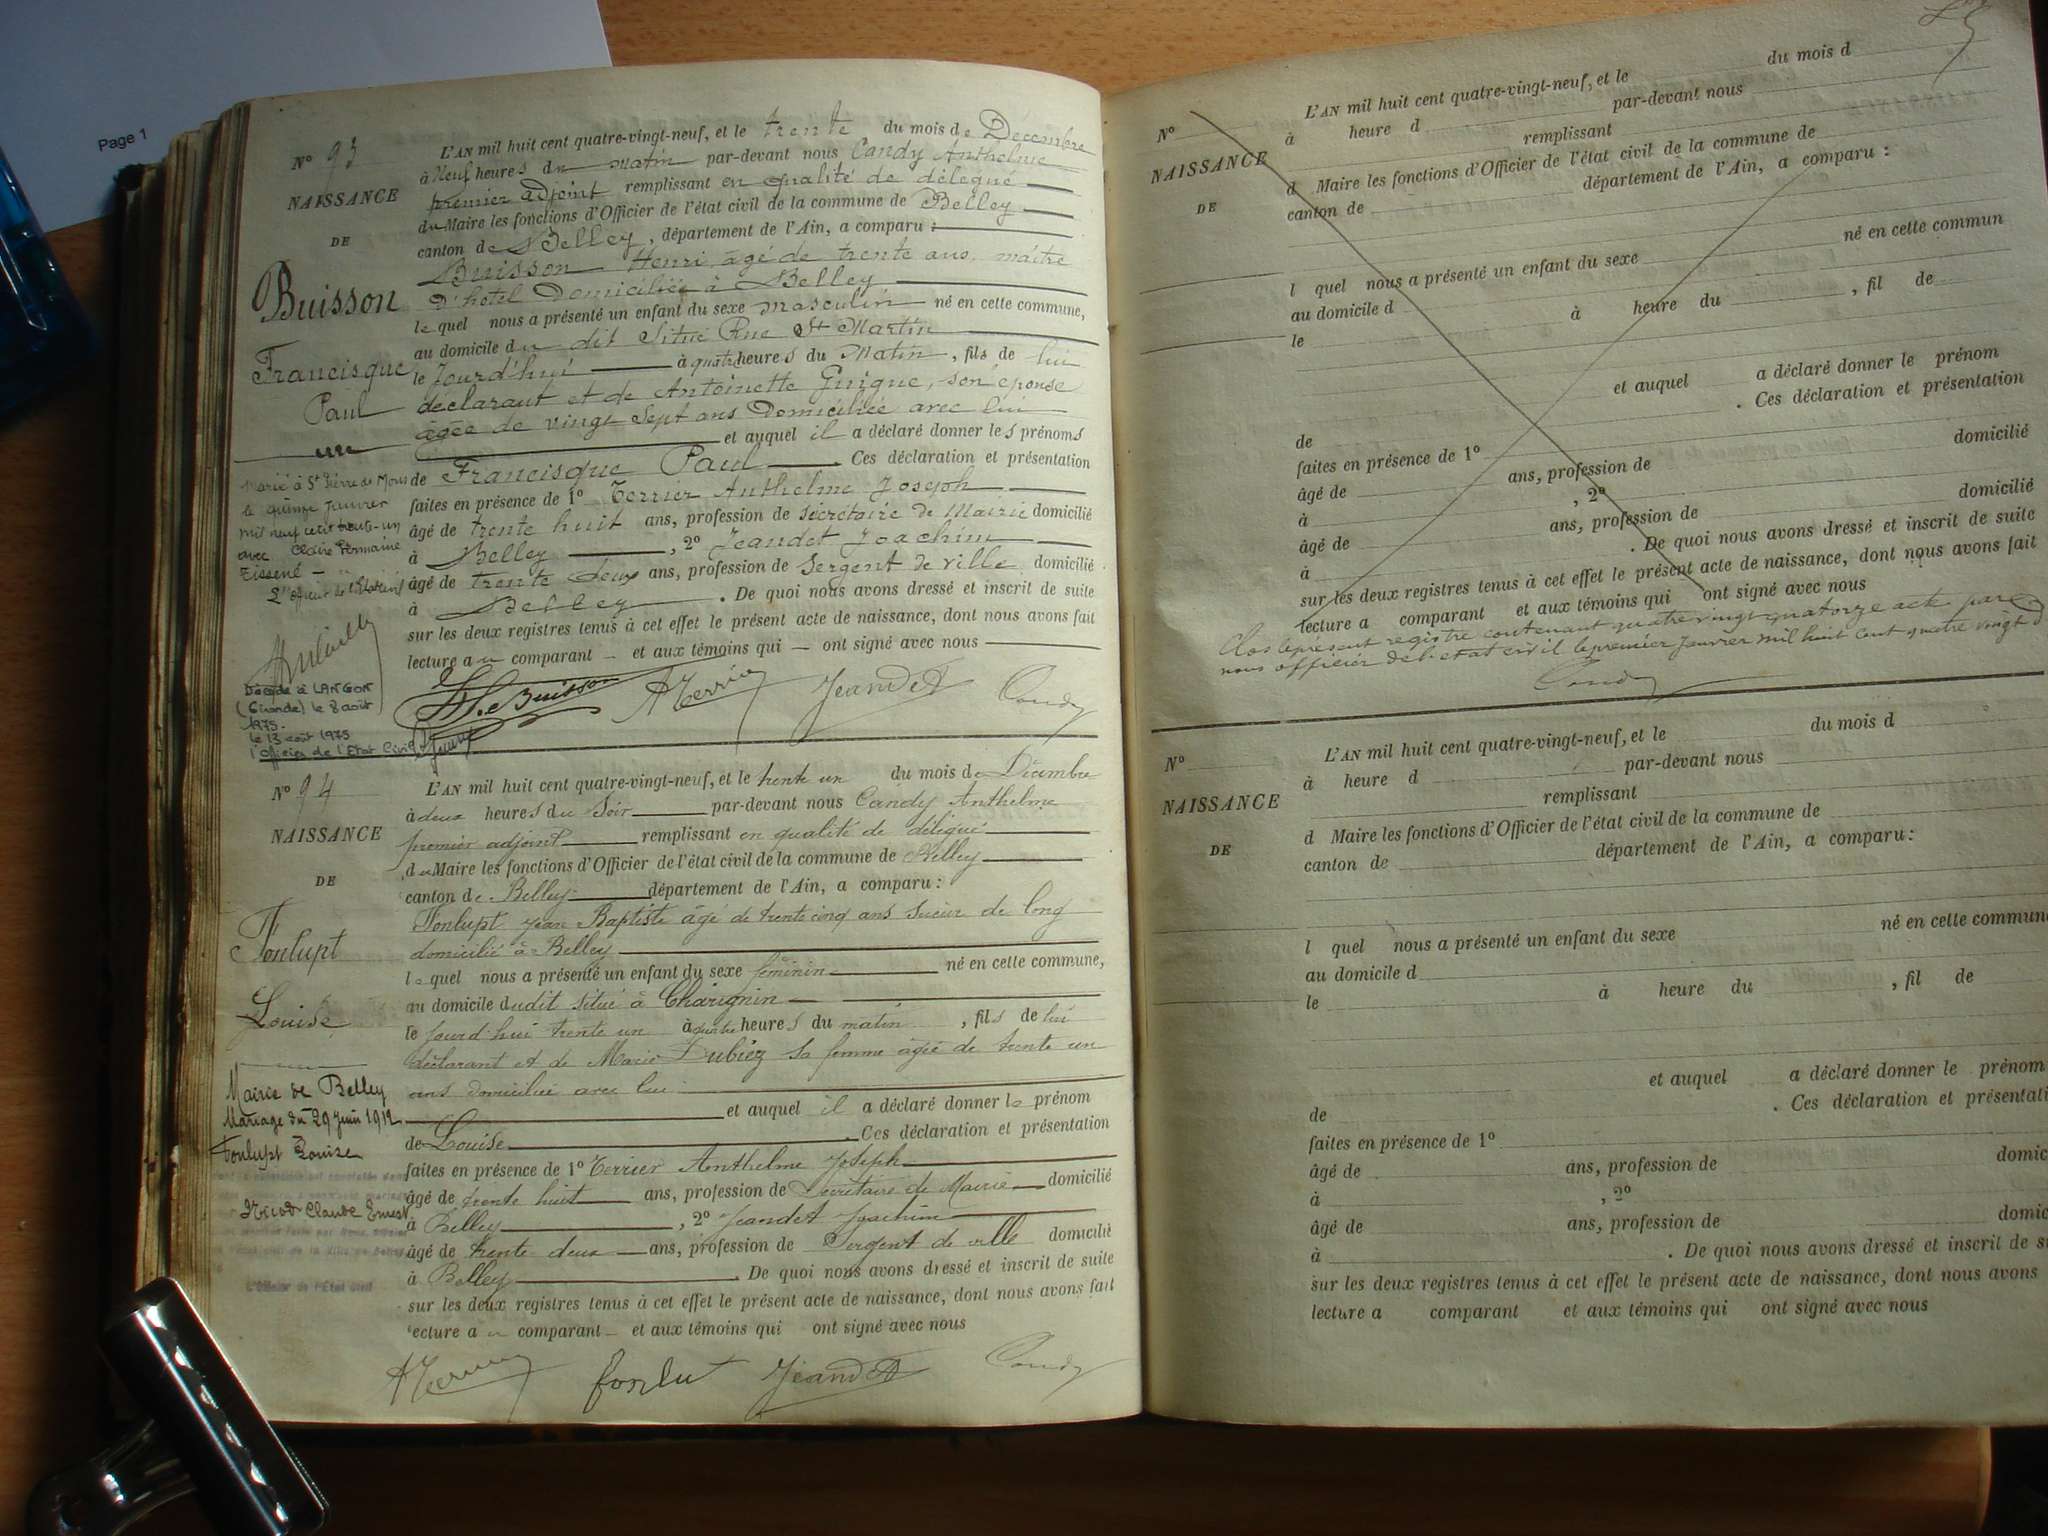 Page 1
N° 93
NAISSANCE
DE
Buisson
Francisque
Paul
L'AN mil huit cent quatre-vingt-neuf, et le trente du mois de Décembre
à Neuf heures du matin par-devant nous Candy Anthelme
premier adjoint remplissant en qualité de délégué
du Maire les fonctions d'Officier de l'état civil de la commune de Belley
canton de Belley, département de l'Ain, a comparu :
Buisson Henri, âgé de trente ans, maître
D'hôtel Domicilié à Belley
lequel nous a présenté un enfant du sexe masculin né en cette commune,
au domicile du dit Situé Rue St Martin
le Jourd'hui à quatre heures du Matin, fils de lui
déclarant et de Antoinette Guigue, son épouse
âgée de vingt Sept ans Domiciliée avec lui
et auquel il a déclaré donner les prénoms
de Francisque Paul. Ces déclaration et présentation
faites en présence de 1° Terrier Anthelme Joseph
âgé de trente huit ans, profession de secrétaire de Mairie domicilié
à Belley, 2° Jeandet Joachim
âgé de trente deux ans, profession de Sergent de ville domicilié
à Belley. De quoi nous avons dressé et inscrit de suite
sur les deux registres tenus à cet effet le présent acte de naissance, dont nous avons fait
lecture au comparant et aux témoins qui ont signé avec nous
Marié à St Pierre de Mons
le quinze Janvier
mil neuf cent trente-un
avec Claire Germaine
Tissené
L'officier de l'Etat civil
Décédé à LANGON
(Gironde) le 8 août
1975.
le 13 août 1975
l'Officier de l'Etat Civil
Buisson ATerrier Jeandet Candy
N° 94
NAISSANCE
DE
Fonlupt
Louise
L'AN mil huit cent quatre-vingt-neuf, et le trente un du mois de Décembre
à deux heures du Soir par-devant nous Candy Anthelme
premier adjoint remplissant en qualité de délégué
du Maire les fonctions d'Officier de l'état civil de la commune de Belley
canton de Belley département de l'Ain, a comparu :
Fonlupt Jean Baptiste âgé de trente cinq ans Scieur de long
domicilié à Belley
lequel nous a présenté un enfant du sexe féminin né en cette commune,
au domicile dudit situé à Charignin
le jourd'hui trente un à quatre heures du matin, fils de lui
déclarant et de Marie Dubiez sa femme âgée de trente un
ans domiciliée avec lui
et auquel il a déclaré donner le prénom
de Louise. Ces déclaration et présentation
faites en présence de 1° Terrier Anthelme Joseph
âgé de trente huit ans, profession de Secrétaire de Mairie domicilié
à Belley, 2° Jeandet Joachim
âgé de trente deux ans, profession de Sergent de ville domicilié
à Belley. De quoi nous avons dressé et inscrit de suite
sur les deux registres tenus à cet effet le présent acte de naissance, dont nous avons fait
lecture au comparant et aux témoins qui ont signé avec nous
Mairie de Belley
Mariage du 29 juin 1912
Fonlupt Louise
Nicod Claude Ernest
L'Officier de l'Etat Civil
ATerrier fonlu Jeandet Candy
N°
NAISSANCE
DE
L'AN mil huit cent quatre-vingt-neuf, et le du mois d
à heure d par-devant nous
remplissant
d Maire les fonctions d'Officier de l'état civil de la commune de
canton de département de l'Ain, a comparu :
l quel nous a présenté un enfant du sexe né en cette commun
au domicile d
le à heure du , fil de
et auquel a déclaré donner le prénom
de . Ces déclaration et présentation
faites en présence de 1°
âgé de ans, profession de domicilié
à , 2°
âgé de ans, profession de domicilié
à . De quoi nous avons dressé et inscrit de suite
sur les deux registres tenus à cet effet le présent acte de naissance, dont nous avons fait
lecture a comparant et aux témoins qui ont signé avec nous
Clos le présent registre contenant quatre vingt quatorze acte par
nous officier de l'état civil le premier Janvier mil huit cent quatre vingt d
Candy
N°
NAISSANCE
DE
L'AN mil huit cent quatre-vingt-neuf, et le du mois d
à heure d par-devant nous
remplissant
d Maire les fonctions d'Officier de l'état civil de la commune de
canton de département de l'Ain, a comparu :
l quel nous a présenté un enfant du sexe né en cette commune
au domicile d
le à heure du , fil de
et auquel a déclaré donner le prénom
de . Ces déclaration et présentati
faites en présence de 1°
âgé de ans, profession de domic
à , 2°
âgé de ans, profession de domic
à . De quoi nous avons dressé et inscrit de s
sur les deux registres tenus à cet effet le présent acte de naissance, dont nous avons
lecture a comparant et aux témoins qui ont signé avec nous